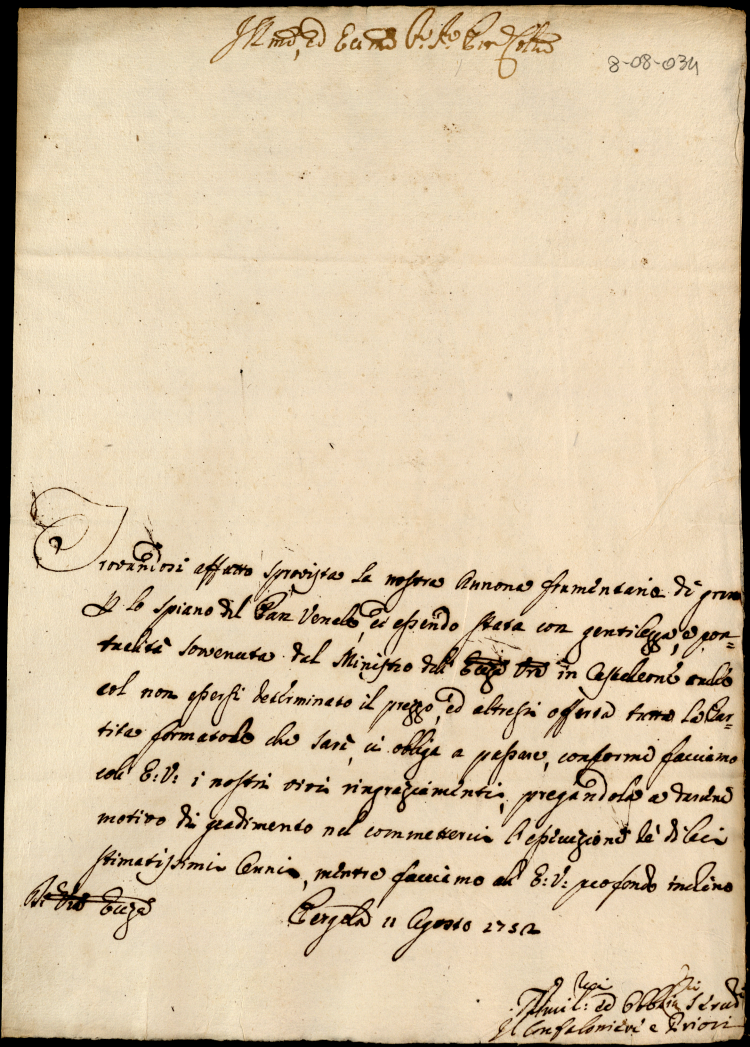 Ill.mo, ed Ecc.mo
8-08-034
Trovandosi affatto sprovista la nostra Annona frumentaria di grano
p lo spiano del Pan Venale, ed essendo stata con gentilezza, e pon=
tualità sovvenuta dal Ministro dell' Ecc.za Vra in Castelleone anche
col non essersi determinato il prezzo, ed altresì offerta tutta la Par=
tita che sarà, ci obliga a passare, conforme facciamo
coll' E: V: i nostri vivi ringraziamenti, pregandola a darcene
motivo di gradimento nel commetterci l'esecuzione de di lei
stimatissimi Cenni, mentre facciamo all' E: V: profondo inchino
Vra Ecc.za
Pergola 11 Agosto 1752
Umil: ed Obbl
Il Confaloniere e Priori